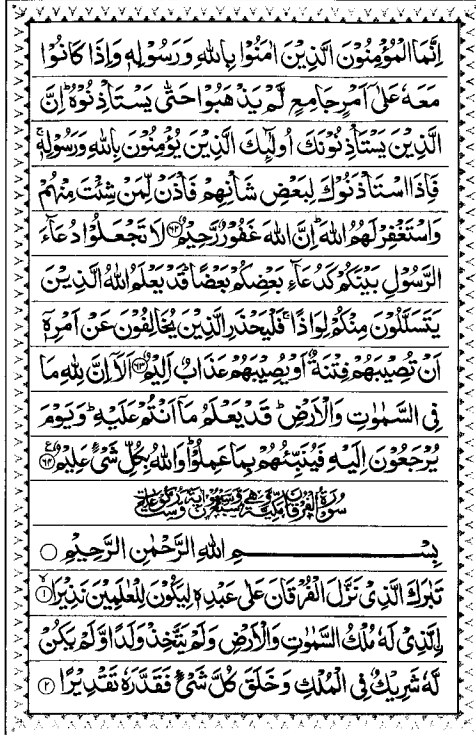 اِنَّمَا الْمُؤْمِنُوْنَ الَّذِيْنَ اٰمَنُوْا بِاللّٰهِ وَرَسُوْلِهٖ وَاِذَا كَانُوْا
مَعَهٗ عَلٰٓى اَمْرٍ جَامِعٍ لَّمْ يَذْهَبُوْا حَتّٰى يَسْتَاْذِنُوْهُ ؕ اِنَّ
الَّذِيْنَ يَسْتَاْذِنُوْنَكَ اُولٰٓئِكَ الَّذِيْنَ يُؤْمِنُوْنَ بِاللّٰهِ وَرَسُوْلِهٖ ۚ
فَاِذَا اسْتَاْذَنُوْكَ لِبَعْضِ شَاْنِهِمْ فَاْذَنْ لِّمَنْ شِئْتَ مِنْهُمْ
وَاسْتَغْفِرْ لَهُمُ اللّٰهَ ؕ اِنَّ اللّٰهَ غَفُوْرٌ رَّحِيْمٌ ﴿۶۲﴾ لَا تَجْعَلُوْا دُعَآءَ
الرَّسُوْلِ بَيْنَكُمْ كَدُعَآءِ بَعْضِكُمْ بَعْضًا ؕ قَدْ يَعْلَمُ اللّٰهُ الَّذِيْنَ
يَتَسَلَّلُوْنَ مِنْكُمْ لِوَاذًا ۚ فَلْيَحْذَرِ الَّذِيْنَ يُخَالِفُوْنَ عَنْ اَمْرِهٖٓ
اَنْ تُصِيْبَهُمْ فِتْنَةٌ اَوْ يُصِيْبَهُمْ عَذَابٌ اَلِيْمٌ ﴿۶۳﴾ اَلَاۤ اِنَّ لِلّٰهِ مَا
فِى السَّمٰوٰتِ وَالْاَرْضِ ؕ قَدْ يَعْلَمُ مَاۤ اَنْتُمْ عَلَيْهِ ؕ وَيَوْمَ
يُرْجَعُوْنَ اِلَيْهِ فَيُنَبِّئُهُمْ بِمَا عَمِلُوْا ؕ وَاللّٰهُ بِكُلِّ شَىْءٍ عَلِيْمٌ ﴿۶۴﴾
سُوْرَةُ الْفُرْقَانِ مَكِّيَّةٌ وَّهِىَ سَبْعٌ وَّسَبْعُوْنَ اٰيَةً
بِسْمِ اللّٰهِ الرَّحْمٰنِ الرَّحِيْمِ
تَبٰرَكَ الَّذِىْ نَزَّلَ الْفُرْقَانَ عَلٰى عَبْدِهٖ لِيَكُوْنَ لِلْعٰلَمِيْنَ نَذِيْرَا ﴿۱﴾
اِ۟لَّذِىْ لَهٗ مُلْكُ السَّمٰوٰتِ وَالْاَرْضِ وَلَمْ يَتَّخِذْ وَلَدًا وَّلَمْ يَكُنْ
لَّهٗ شَرِيْكٌ فِى الْمُلْكِ وَخَلَقَ كُلَّ شَىْءٍ فَقَدَّرَهٗ تَقْدِيْرًا ﴿۲﴾